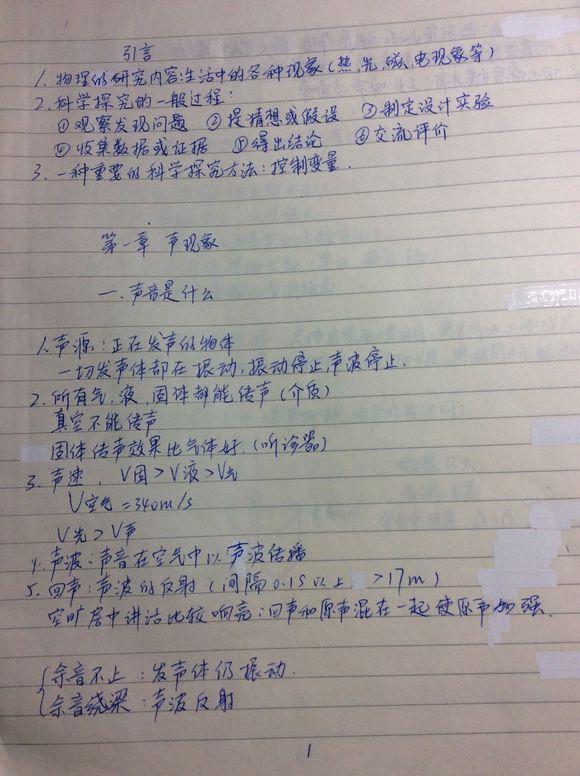 引言
1. 物理的研究内容:生活中的各种现象(热、光、磁、电现象等)
2. 科学探究的一般过程:
① 观察发现问题 ② 提猜想或假设 ③ 制定设计实验
④ 收集数据或证据 ⑤ 得出结论 ⑥ 交流评价
3. 一种重要的科学探究方法:控制变量.
第一章 声现象
一. 声音是什么
1. 声源:正在发声的物体
一切发声体都在振动,振动停止,声波停止.
2. 所有气、液、固体都能传声(介质)
真空不能传声
固体传声效果比气体好.(听诊器)
3. 声速. V固>V液>V气
V空气=340m/s
V光>V声
4. 声波:声音在空气中以声波传播
5. 回声:声波的反射(间隔0.1S以上 >17m)
空旷居中讲话比较响亮:回声和原声混在一起使原声加强.
余音不止:发声体仍振动.
余音绕梁:声波反射
1